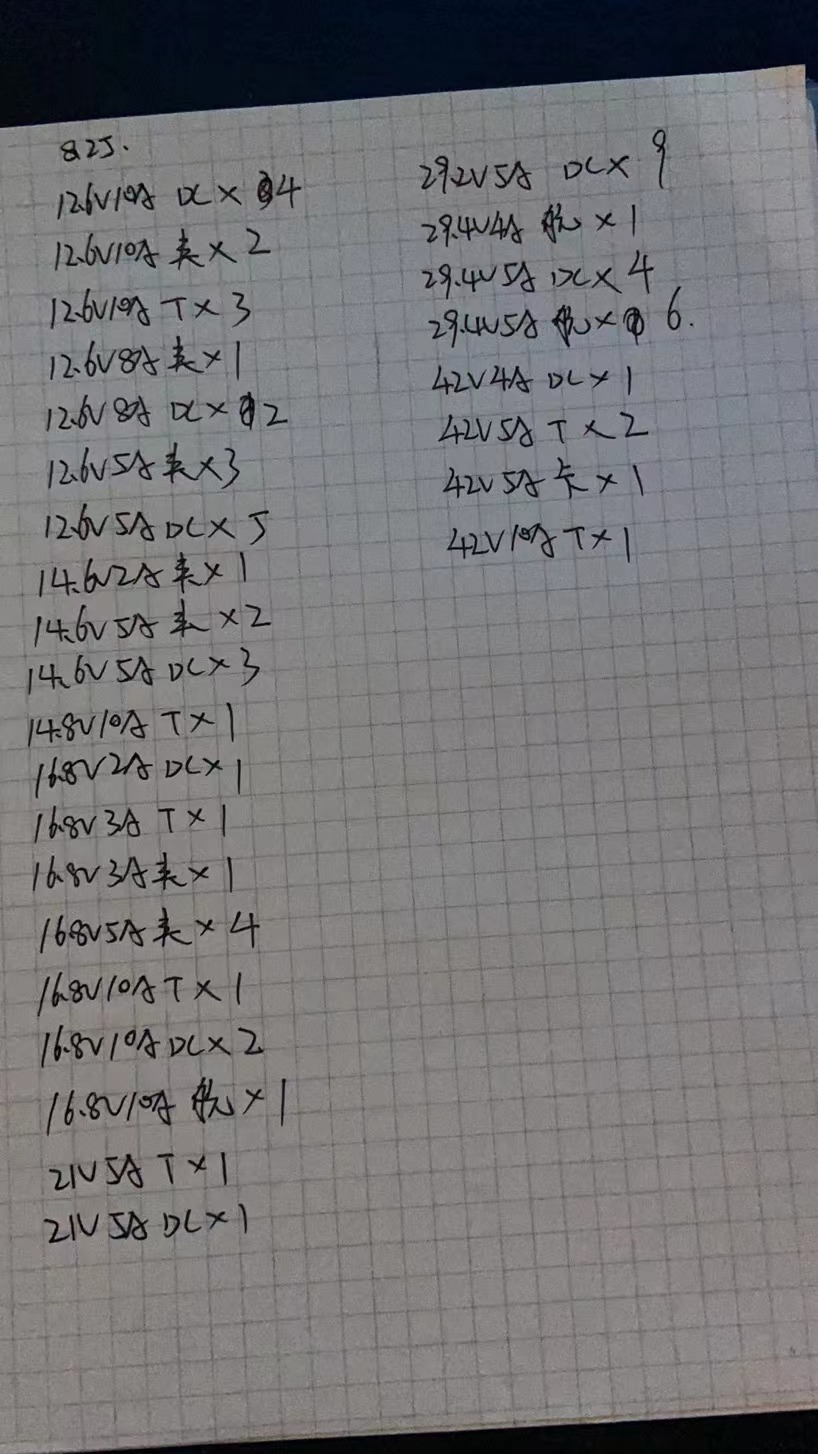 8.25.
12.6V10A DC × 4
12.6V10A 夹 × 2
12.6V10A T × 3
12.6V8A 夹 × 1
12.6V8A DC × 2
12.6V5A 夹 × 3
12.6V5A DC × 5
14.6V2A 夹 × 1
14.6V5A 夹 × 2
14.6V5A DC × 3
14.8V10A T × 1
16.8V2A DC × 1
16.8V3A T × 1
16.8V3A 夹 × 1
16.8V5A 夹 × 4
16.8V10A T × 1
16.8V10A DC × 2
16.8V10A 航 × 1
21V5A T × 1
21V5A DC × 1
29.2V5A DC × 9
29.4V4A 航 × 1
29.4V5A DC × 4
29.4V5A 航 × 6.
42V4A DC × 1
42V5A T × 2
42V5A 卡 × 1
42V10A T × 1